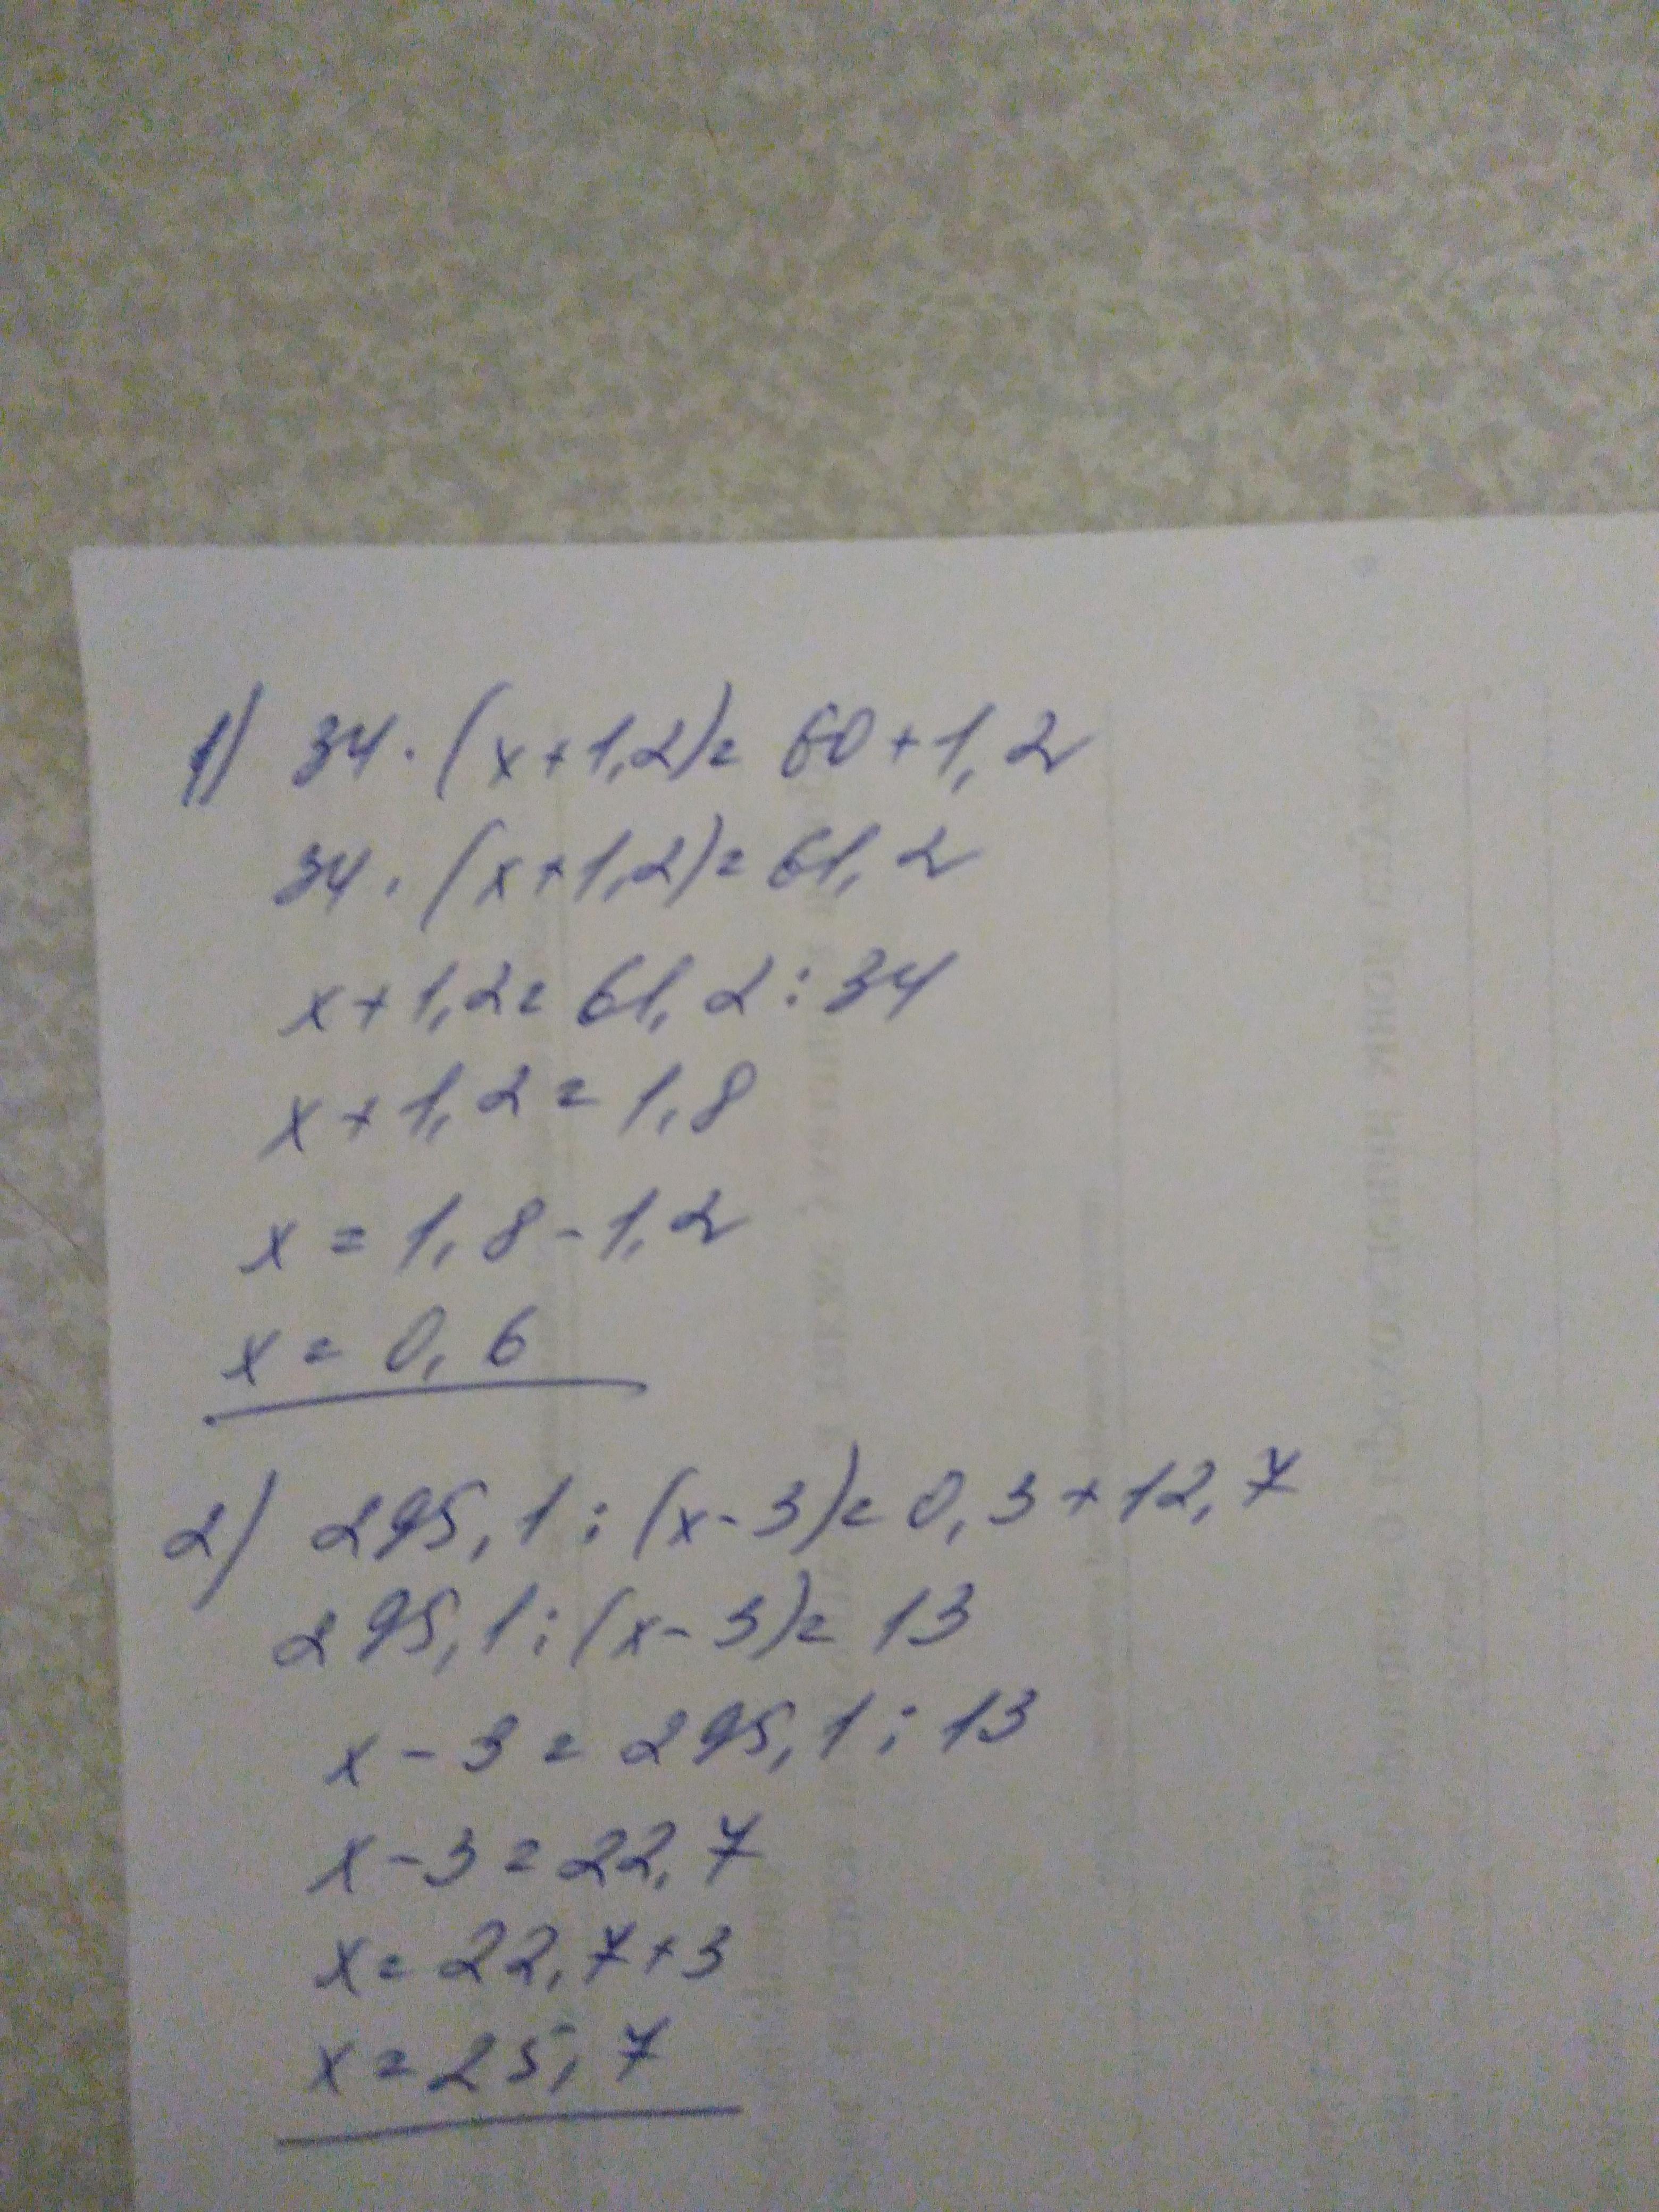 1) 34 · (x+1,2)= 60+1,2
34 · (x+1,2)= 61,2
x+1,2= 61,2:34
x+1,2=1,8
x = 1,8-1,2
x = 0,6
2) 295,1:(x-3)= 0,3+12,7
295,1:(x-3)= 13
x-3 = 295,1:13
x-3=22,7
x=22,7+3
x=25,7